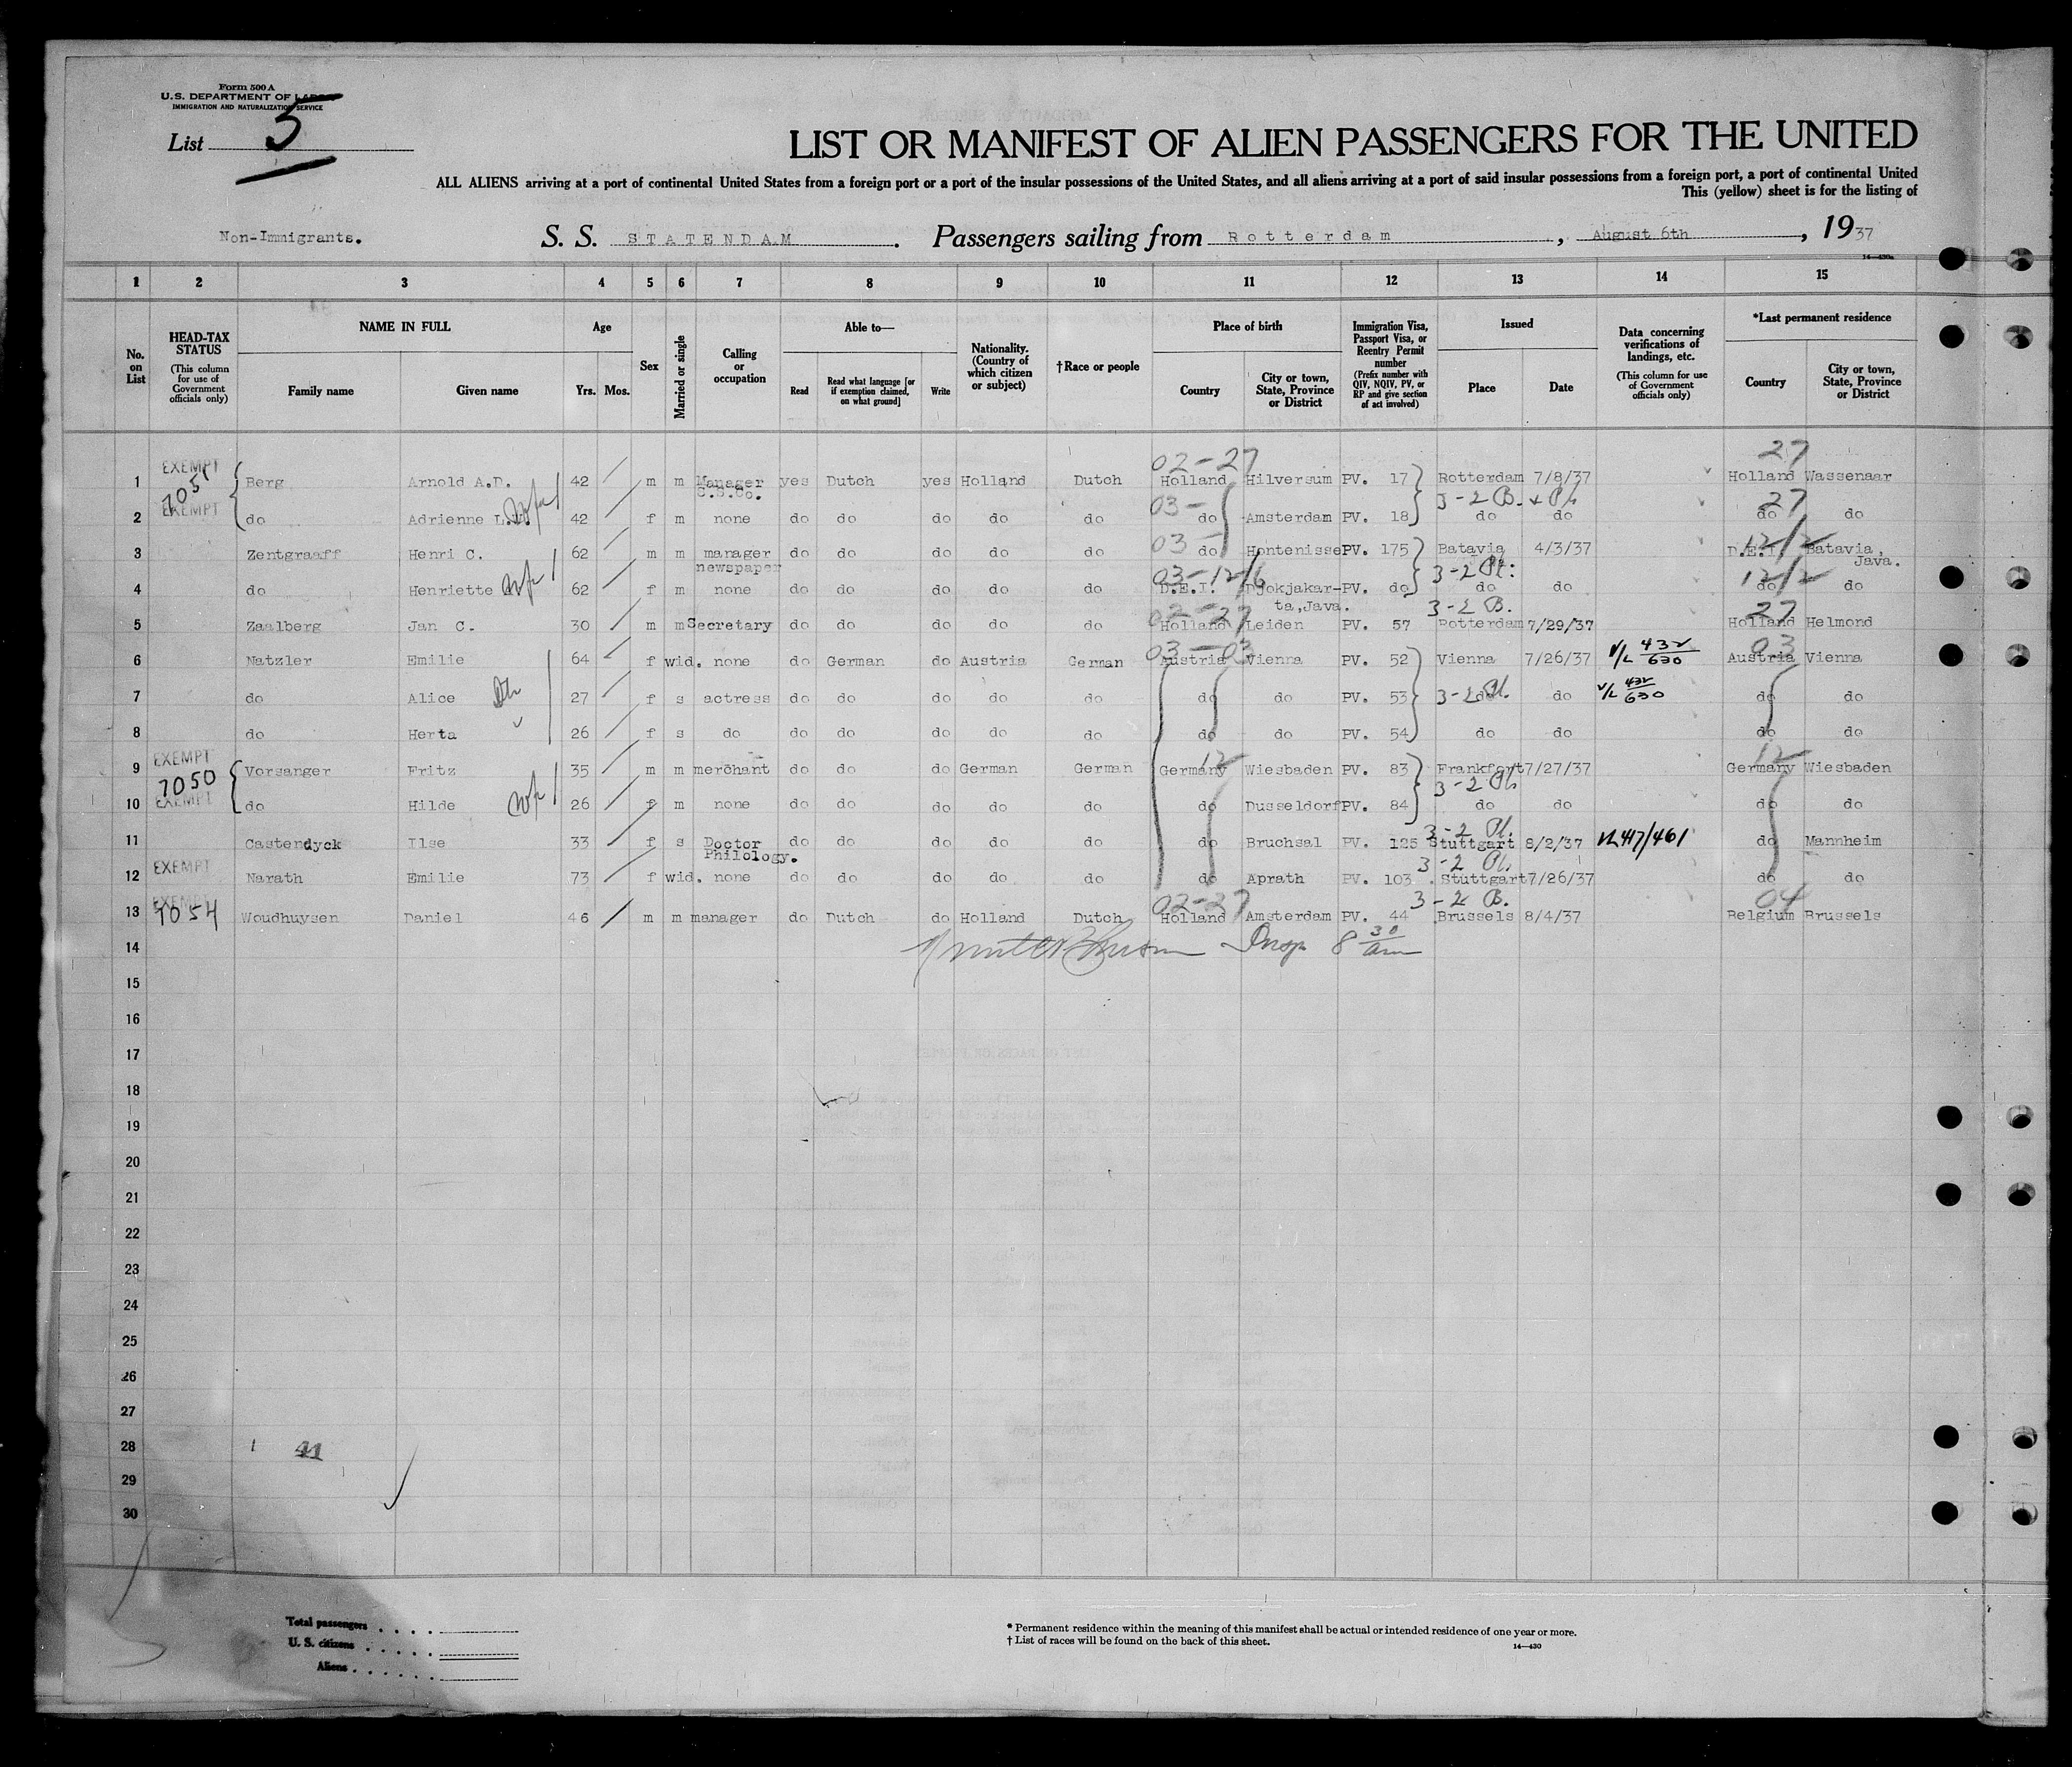 Form 500 A
U.S. DEPARTMENT OF LABOR
IMMIGRATION AND NATURALIZATION SERVICE
List 5
LIST OR MANIFEST OF ALIEN PASSENGERS FOR THE UNITED
ALL ALIENS arriving at a port of continental United States from a foreign port or a port of the insular possessions of the United States, and all aliens arriving at a port of said insular possessions from a foreign port, a port of continental United
This (yellow) sheet is for the listing of
Non-Immigrants. S. S. STATENDAM. Passengers sailing from Rotterdam, August 6th, 1937
14—430a
1 2 3 4 5 6 7 8 9 10 11 12 13 14 15
No. on List
HEAD-TAX STATUS (This column for use of Government officials only)
NAME IN FULL
Family name Given name
Age
Yrs. Mos.
Sex
Married or single
Calling or occupation
Able to—
Read Read what language [or if exemption claimed, on what ground] Write
Nationality. (Country of which citizen or subject)
†Race or people
Place of birth
Country City or town, State, Province or District
Immigration Visa, Passport Visa, or Reentry Permit number (Prefix number with QIV, NQIV, PV, or RP and give section of act involved)
Issued
Place Date
Data concerning verifications of landings, etc. (This column for use of Government officials only)
*Last permanent residence
Country City or town, State, Province or District
EXEMPT 02-27 27
1 7051 Berg Arnold A.D. 42 m m Manager yes Dutch yes Holland Dutch Holland Hilversum PV. 17 Rotterdam 7/8/37 Holland Wassenaar
S.S.Co.
EXEMPT 03- 3-2 B. & Pl. 27
2 do Adrienne 42 f m none do do do do do do Amsterdam PV. 18 do do do do
3 Zentgraaff Henri C. 62 m m manager do do do do do 03 do Hontenisse PV. 175 Batavia 4/3/37 D.E.I. 12/2 Batavia,
newspaper Java.
03-12/6 3-2 Pl. 12/2
4 do Henriette 62 f m none do do do do do D.E.I. Djokjakar- PV. do do do do do
ta, Java.
02-27 3-2 B. 27
5 Zaalberg Jan C. 30 m m Secretary do do do do do Holland Leiden PV. 57 Rotterdam 7/29/37 Holland Helmond
03-03 03
6 Natzler Emilie 64 f wid. none do German do Austria German Austria Vienna PV. 52 Vienna 7/26/37 V/L 432/630 Austria Vienna
7 do Alice 27 f s actress do do do do do do do PV. 53 3-2 Pl. do do V/L 432/630 do do
8 do Herta 26 f s do do do do do do do do PV. 54 do do do do
EXEMPT 12 12
9 7050 Vorsanger Fritz 35 m m merchant do do do German German Germany Wiesbaden PV. 83 Frankfort 7/27/37 Germany Wiesbaden
EXEMPT 3-2 Pl.
10 do Hilde 26 f m none do do do do do do Dusseldorf PV. 84 do do do do
3-2 Pl.
11 Castendyck Ilse 33 f s Doctor do do do do do do Bruchsal PV. 125 Stuttgart 8/2/37 VL 417/461 do Mannheim
Philology.
EXEMPT 3-2 Pl.
12 Narath Emilie 73 f wid. none do do do do do do Aprath PV. 103 Stuttgart 7/26/37 do do
EXEMPT 02-27 3-2 B. 04
13 7054 Woudhuysen Daniel 46 m m manager do Dutch do Holland Dutch Holland Amsterdam PV. 44 Brussels 8/4/37 Belgium Brussels
14 Insp 8 30/am
15
16
17
18
19
20
21
22
23
24
25
26
27
28 41
29
30
Total passengers
U. S. citizens
Aliens
* Permanent residence within the meaning of this manifest shall be actual or intended residence of one year or more.
† List of races will be found on the back of this sheet.
14—430